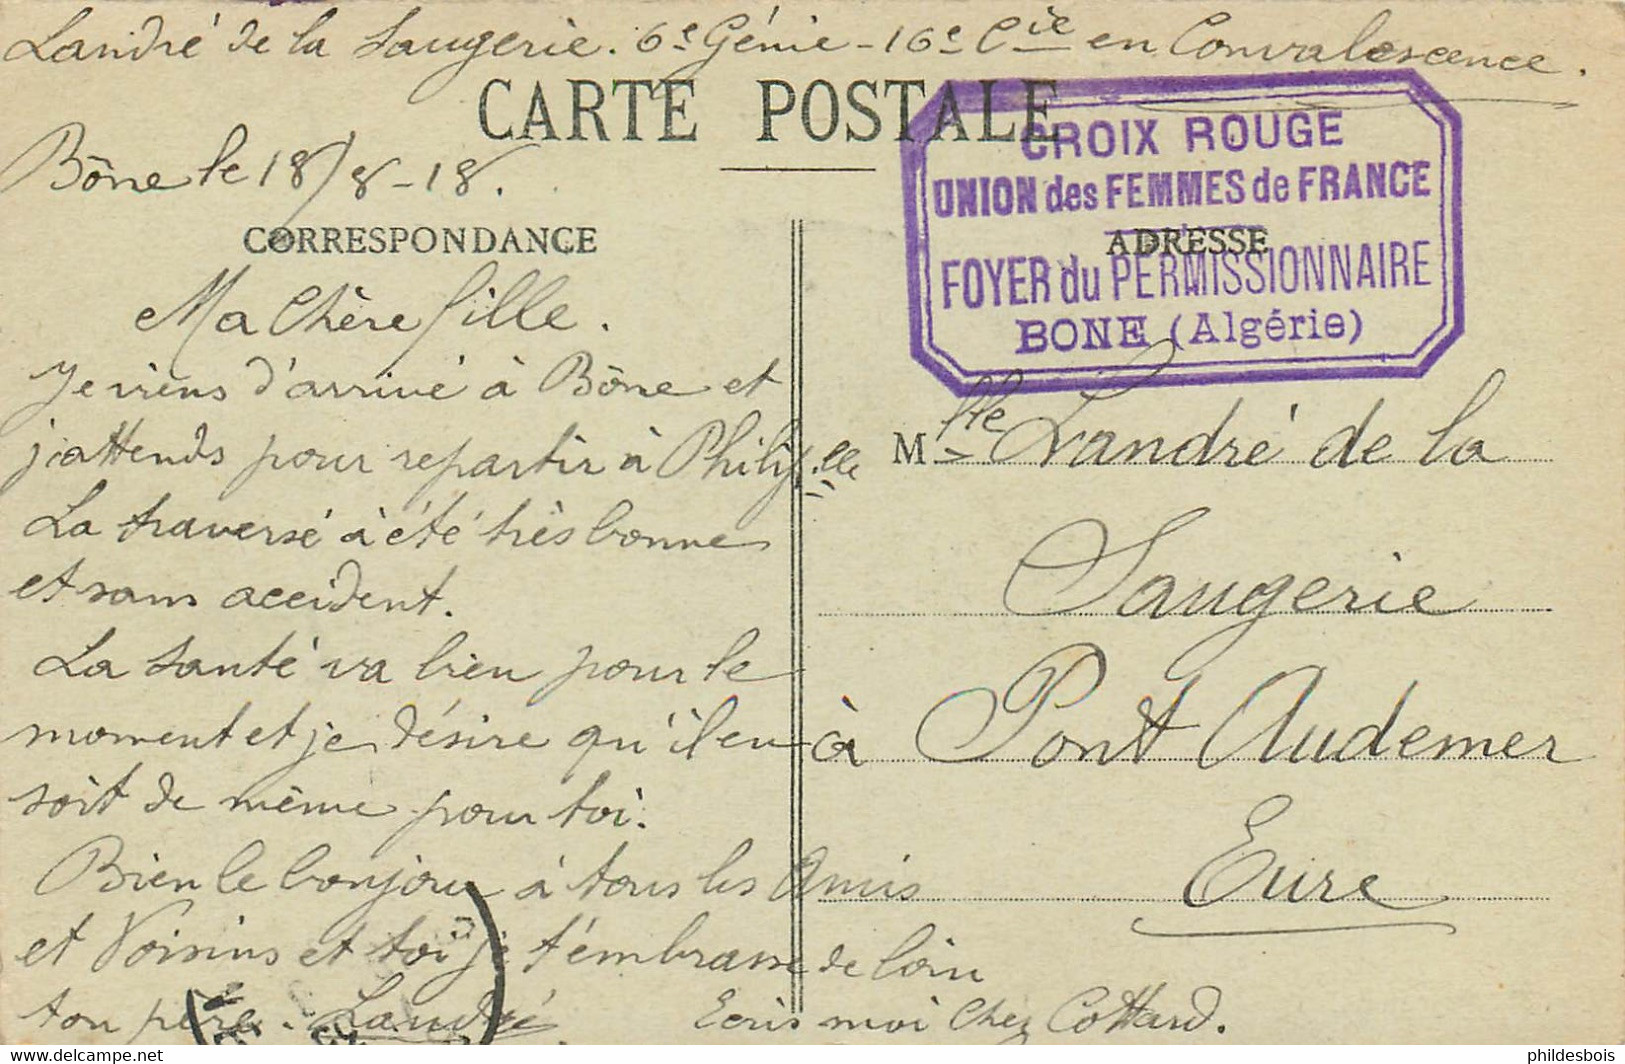 Landré de la Saugerie. 6e Génie - 16e Cie en Convalescence.
CARTE POSTALE
Bône le 18/8-18.
CORRESPONDANCE
Ma Chère fille.
Je viens d'arrivé à Bône et
j'attends pour repartir à Philip.lle
La traversé à été très bonne
et sans accident.
La santé va bien pour le
moment et je désire qu'il en
soit de même pour toi.
Bien le bonjour à tous les Amis
et Voisins et toi je t'embrasse de loin
ton père. Landré
Ecris moi Chez Cottard.
CROIX ROUGE
UNION des FEMMES de FRANCE
ADRESSE
FOYER du PERMISSIONNAIRE
BONE (Algérie)
Mlle Landré de la
Saugerie
à Pont Audemer
Eure
phildesbois